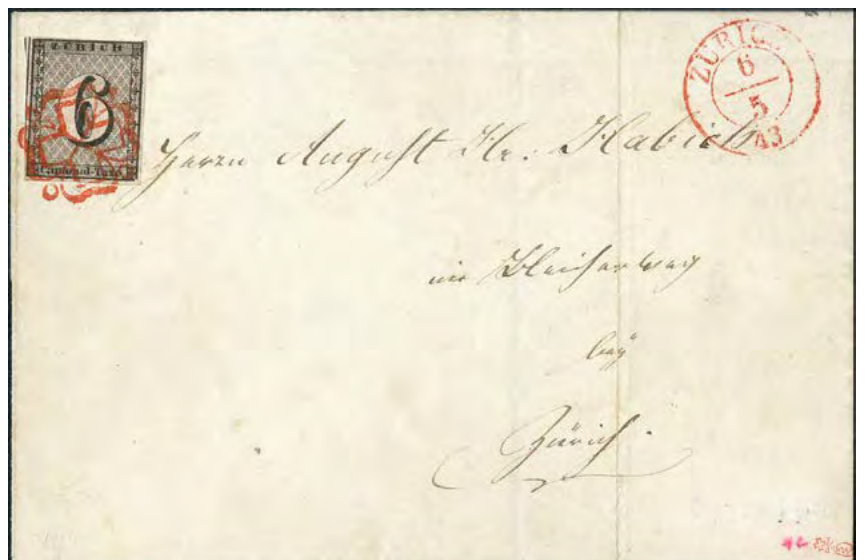 ZÜRICH
6
Cantonal-Taxe
ZÜRICH
6
5
43
Herrn August Hr: Habich
im Bleicherweg
bey
Zürich.